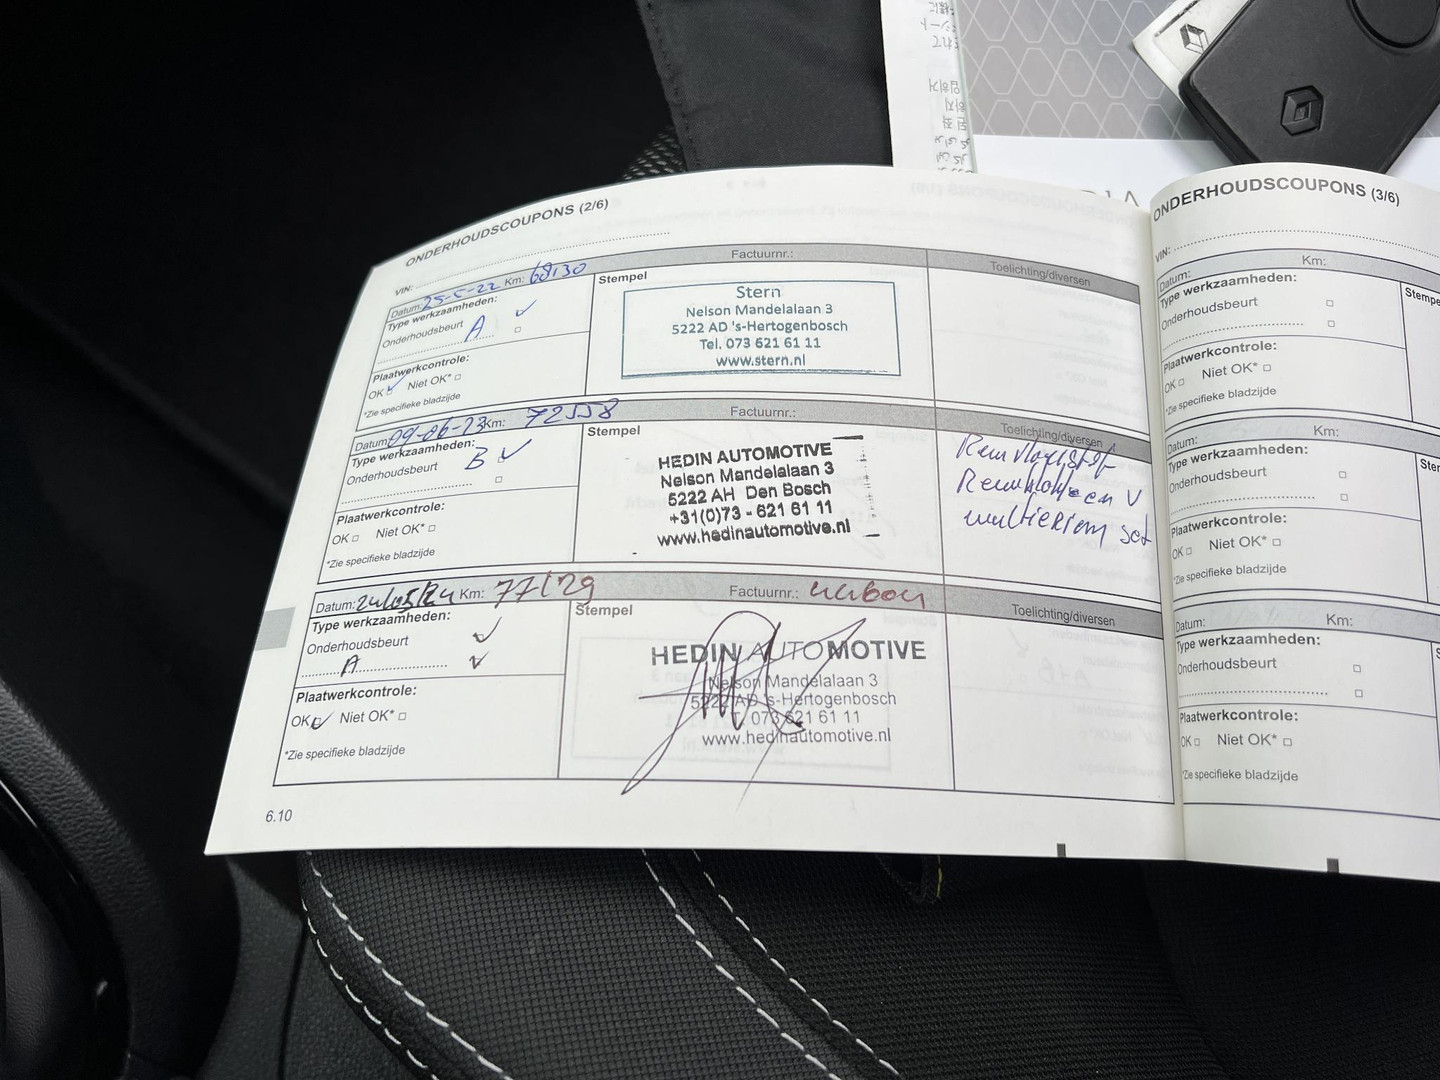 ONDERHOUDSCOUPONS (2/6)
VIN:
Datum: Km: 68130 Factuurnr.: Toelichting/diversen
Type werkzaamheden:
Onderhoudsbeurt A
Plaatwerkcontrole:
OK Niet OK*
*Zie specifieke bladzijde
Stempel
Stern
Nelson Mandelalaan 3
5222 AD 's-Hertogenbosch
Tel. 073 621 61 11
www.stern.nl
Datum: 09-06-23 Km: 72558 Factuurnr.: Toelichting/diversen
Type werkzaamheden:
Onderhoudsbeurt B
Plaatwerkcontrole:
OK Niet OK*
*Zie specifieke bladzijde
Stempel
HEDIN AUTOMOTIVE
Nelson Mandelalaan 3
5222 AH Den Bosch
+31(0)73 - 621 61 11
www.hedinautomotive.nl
Remvloeistof
V
set
Datum: 24/05/24 Km: 77129 Factuurnr.: Toelichting/diversen
Type werkzaamheden:
Onderhoudsbeurt
A
Plaatwerkcontrole:
OK Niet OK*
*Zie specifieke bladzijde
Stempel
HEDIN AUTOMOTIVE
Nelson Mandelalaan 3
5222 AD 's-Hertogenbosch
073 621 61 11
www.hedinautomotive.nl
6.10
ONDERHOUDSCOUPONS (3/6)
VIN:
Datum: Km:
Type werkzaamheden:
Onderhoudsbeurt
Plaatwerkcontrole:
OK Niet OK*
*Zie specifieke bladzijde
Datum: Km:
Type werkzaamheden:
Onderhoudsbeurt
Plaatwerkcontrole:
OK Niet OK*
*Zie specifieke bladzijde
Datum: Km:
Type werkzaamheden:
Onderhoudsbeurt
Plaatwerkcontrole:
OK Niet OK*
*Zie specifieke bladzijde